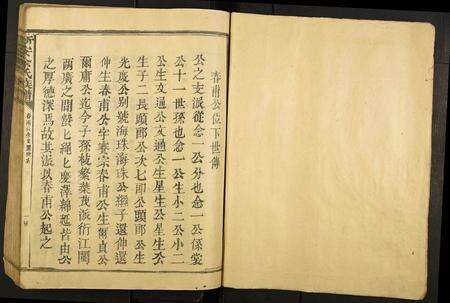 春甫公位下世傳
公之支派從念一公分也念一公係棠
公十一世孫也念一公生小二公小二
公生文通公文通公生星生公星生公
生子二長頭郎公次七郎公頭郎公生
先度公别號海珠海珠公繼子還伸還
伸生春甫公字養宗春甫公生爾貞公
爾庸公迄今子孫椒繁葉茂派衍江閩
兩廣之間蟄匕繩匕慶澤綿延皆由公
之厚德深焉故其派以春甫公起之